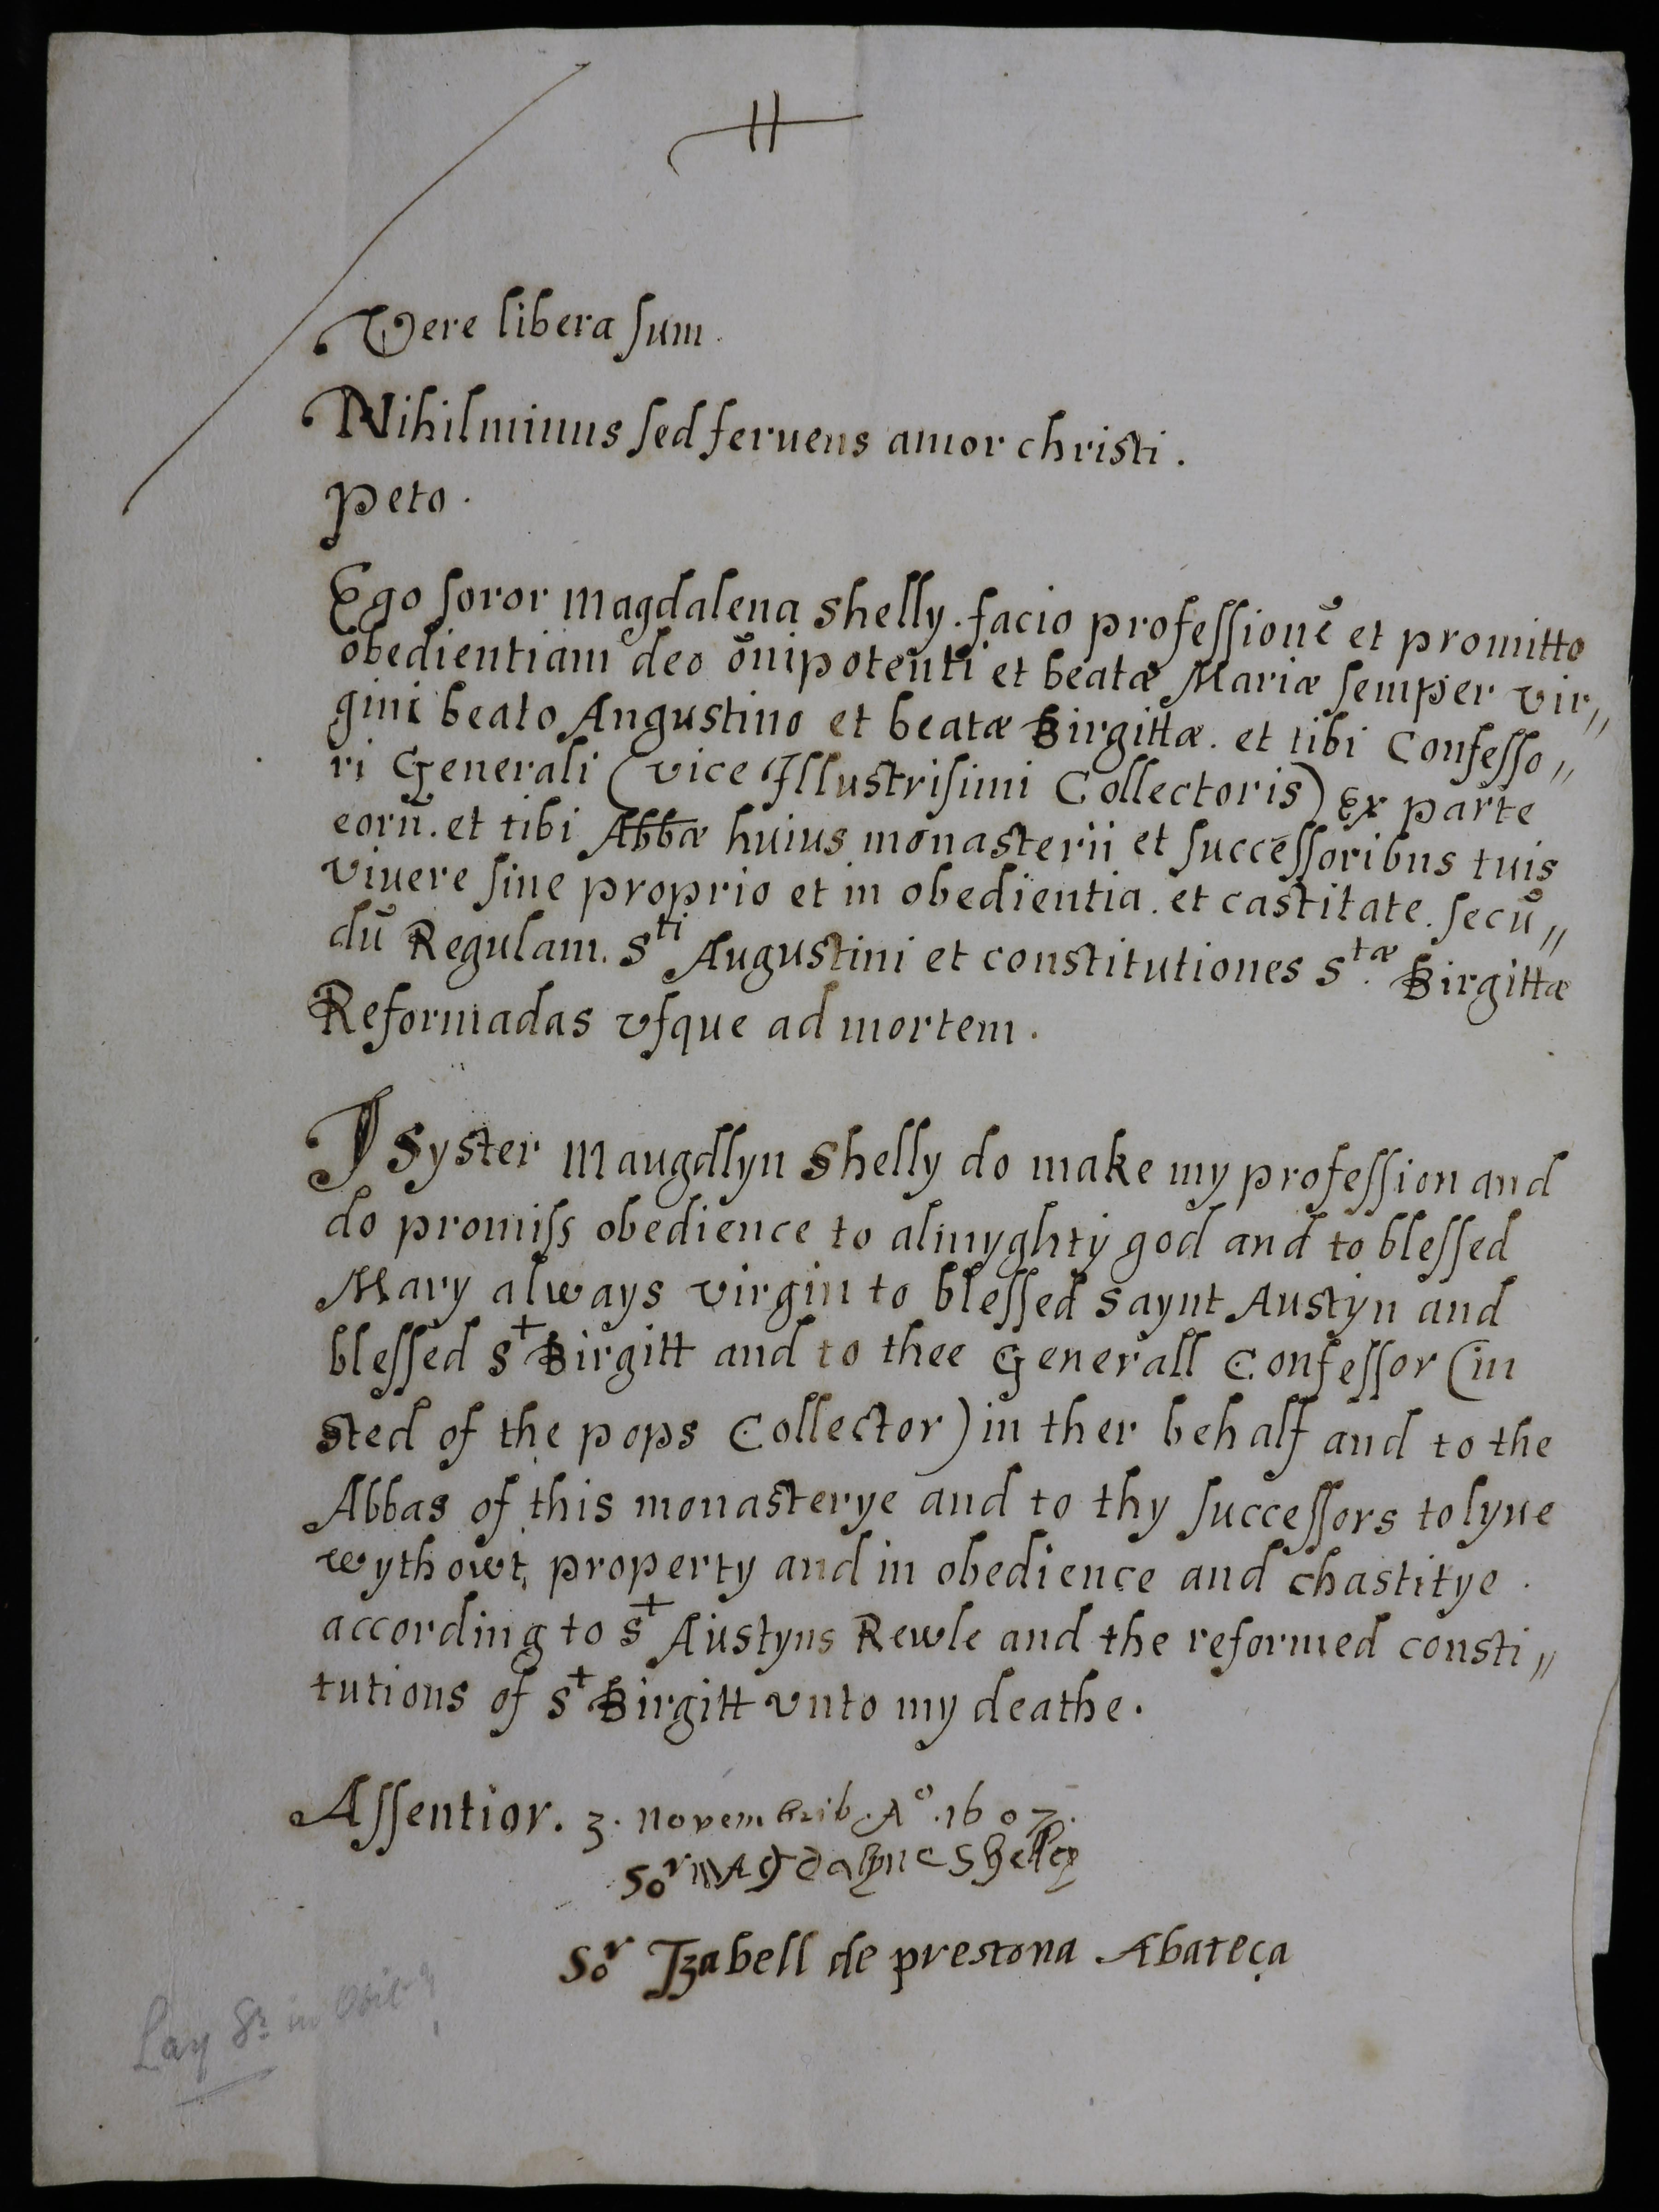 Vere libera sum.
Nihil minus sed feruens amor christi.
Peto.
Ego soror Magdalena Shelly. facio professionē et promitto
obedientiam deo ōnipotenti et beatæ Mariæ semper vir〃
gini beato Augustino et beatæ Birgittæ. et tibi Confesso〃
ri Generali (vice Illustrisimi Collectoris) Ex parte
eorū. et tibi Abbæ huius monasterii et successoribus tuis
viuere sine proprio et in obedientia. et castitate. secū〃
dū Regulam. Sti Augustini et constitutiones Stæ. Birgittæ
Reformadas vsque ad mortem.
I Syster Maugdlyn Shelly do make my profession and
do promiss obedience to almyghty god and to blessed
Mary always virgin to blessed saynt Austyn and
blessed St Birgitt and to thee Generall Confessor (in
sted of the pops Collector) in ther behalf and to the
Abbas of this monasterye and to thy successors to lyue
wythowt property and in obedience and chastitye.
according to St Austyns Rewle and the reformed consti〃
tutions of St Birgitt vnto my deathe.
Assentior. 3. Novembrib. Ao. 1607.
Sor Magdalyne Shelley
Sor Izabell de prestona Abateça
Lay Sr in